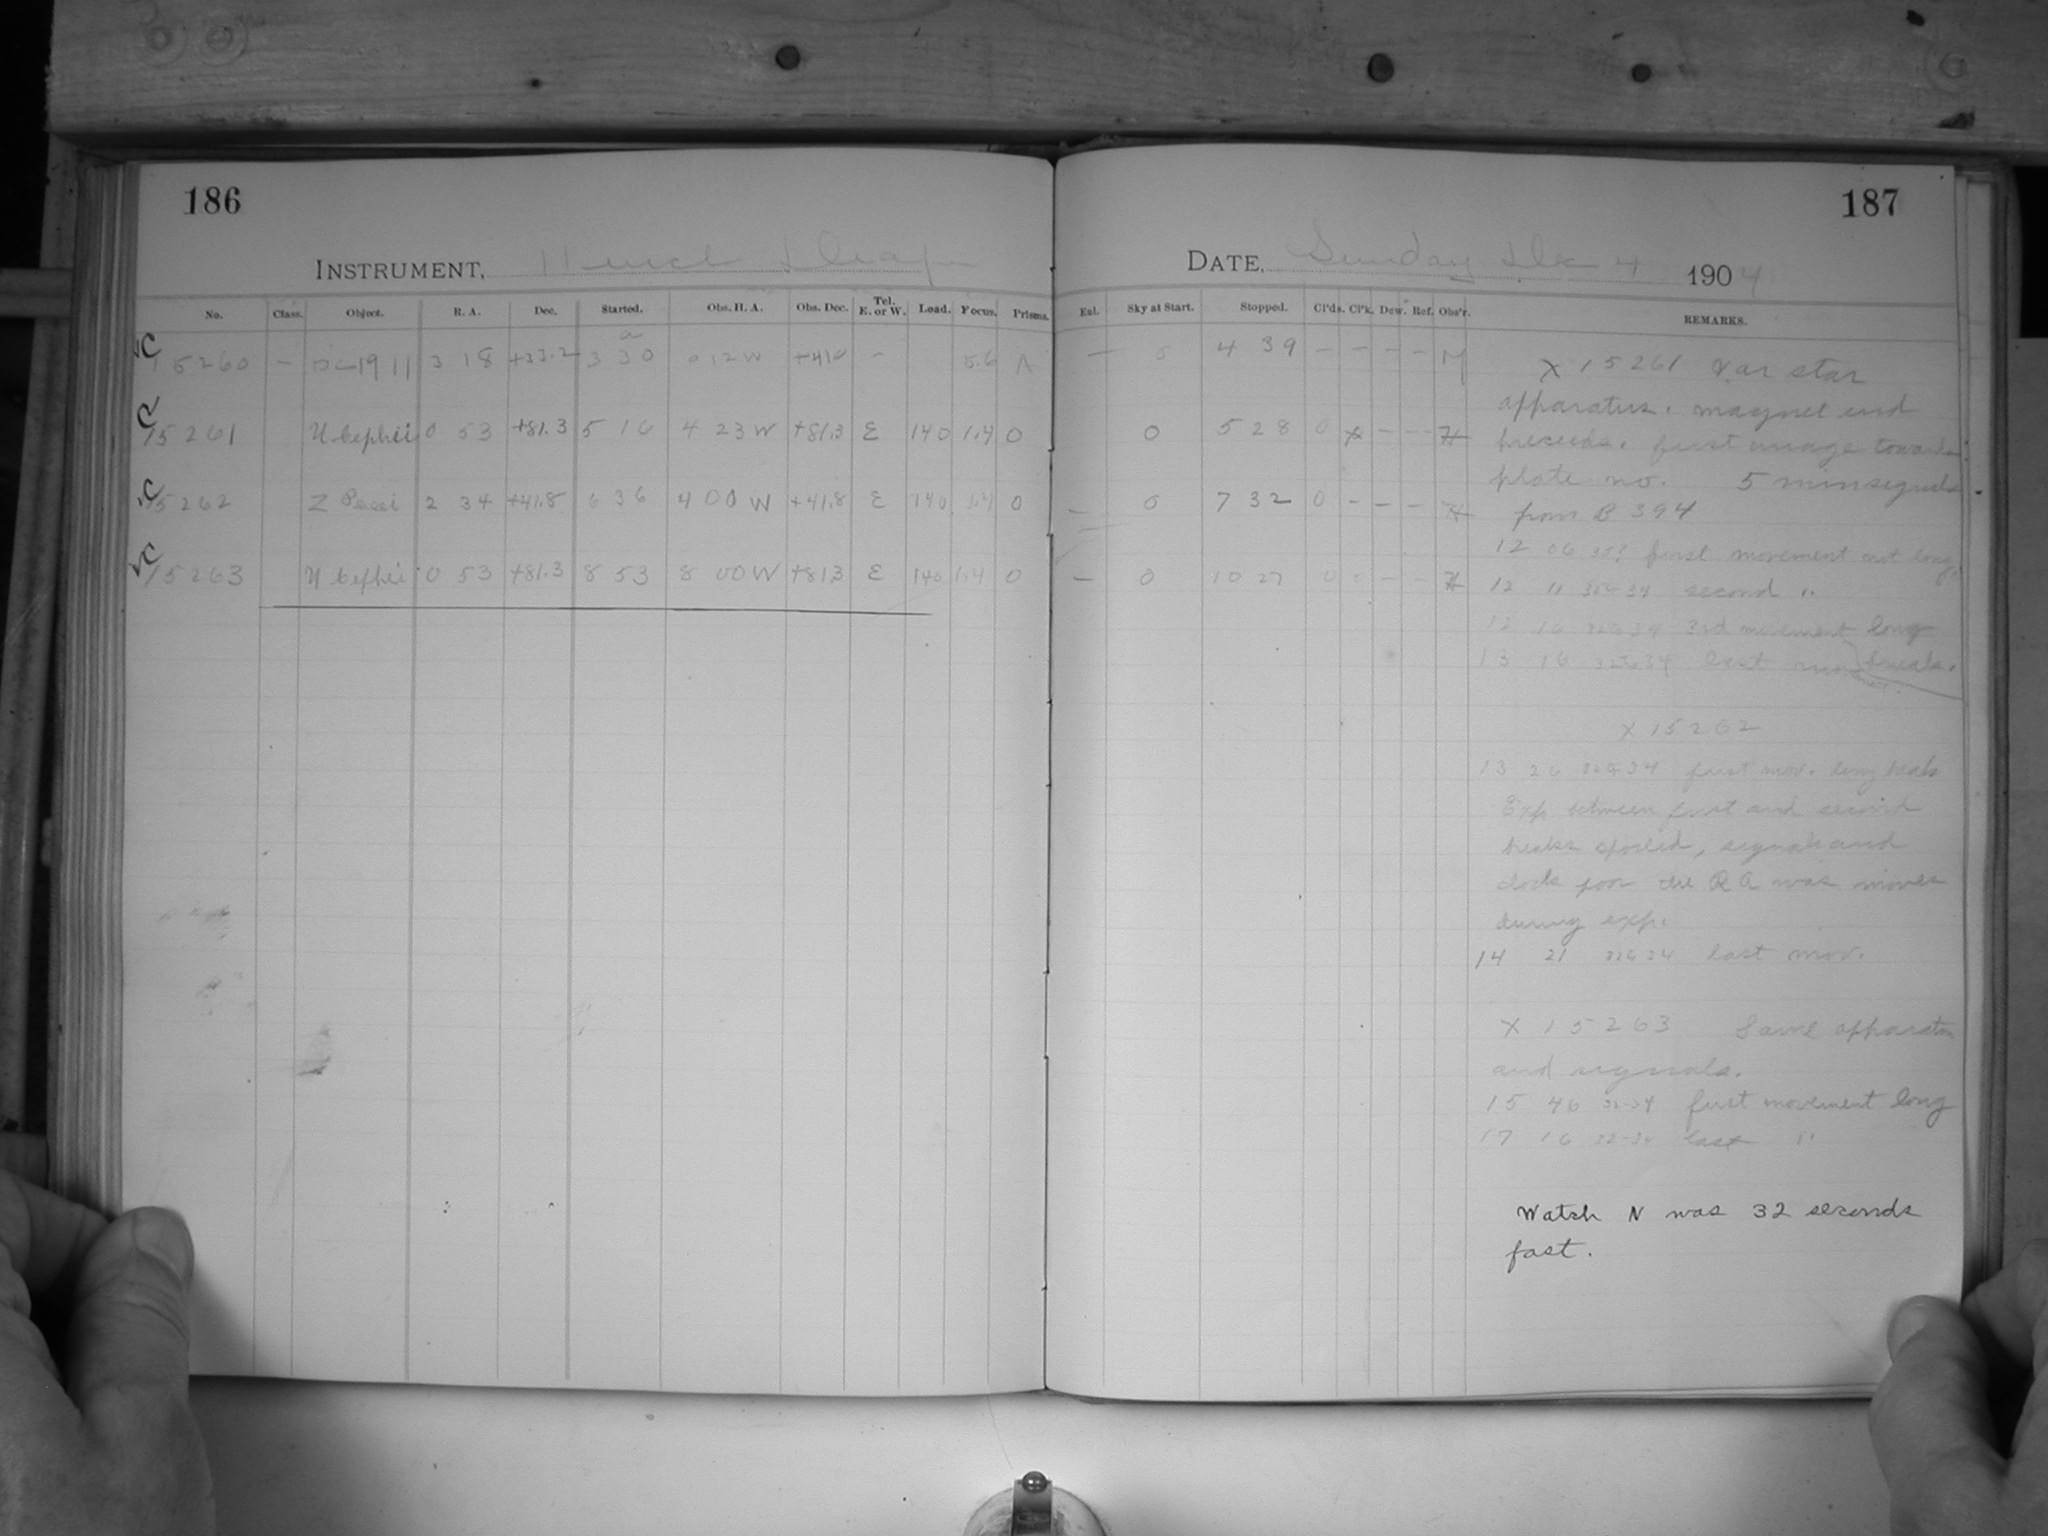 186
INSTRUMENT, 11 inch Draper
No. Class. Object. R. A. Dec. Started. Obs. H. A. Obs. Dec. Tel. E. or W. Load. Focus. Prisms.
15260 – DC 1911 3 18 +33.2 3 30 0 12 W – 5.6
15261 U Cephei 0 53 +81.3 5 16 4 23 W +81.3 E 140 1.4 0
15262 Z 2 34 +41.8 6 36 4 00 W +41.8 E 140 1.4 0
15263 U Cephei 0 53 +81.3 8 53 8 00 W +81.3 E 140 1.4 0
187
DATE, Sunday Dec 4 1904
Sky at Start. Stopped. Cl'ds. Cl'k. Dew. Ref. Obs'r. REMARKS.
– 0 4 39 – – – – M
0 5 28 0 x – – – H
– 0 7 32 0 – – – H
– 0 10 27 0 0 – – H
X 15261 Var star
apparatus. magnet end
precedes. first image towards
plate no. 5 min signals
from B 394
12 06 first movement not long.
12 11 second "
12 16 32 & 34 3rd movement long
13 16 32 & 34 last movement breaks.
X 15262
13 26 32 & 34 first mov. long break
Exp between first and second
breaks spoiled, signals and
clock poor the R A was moved
during exp.
14 21 32 & 34 last mov.
X 15263 Same apparatus
and signals.
15 46 32-34 first movement long
17 16 32-34 last "
Watch N was 32 seconds
fast.